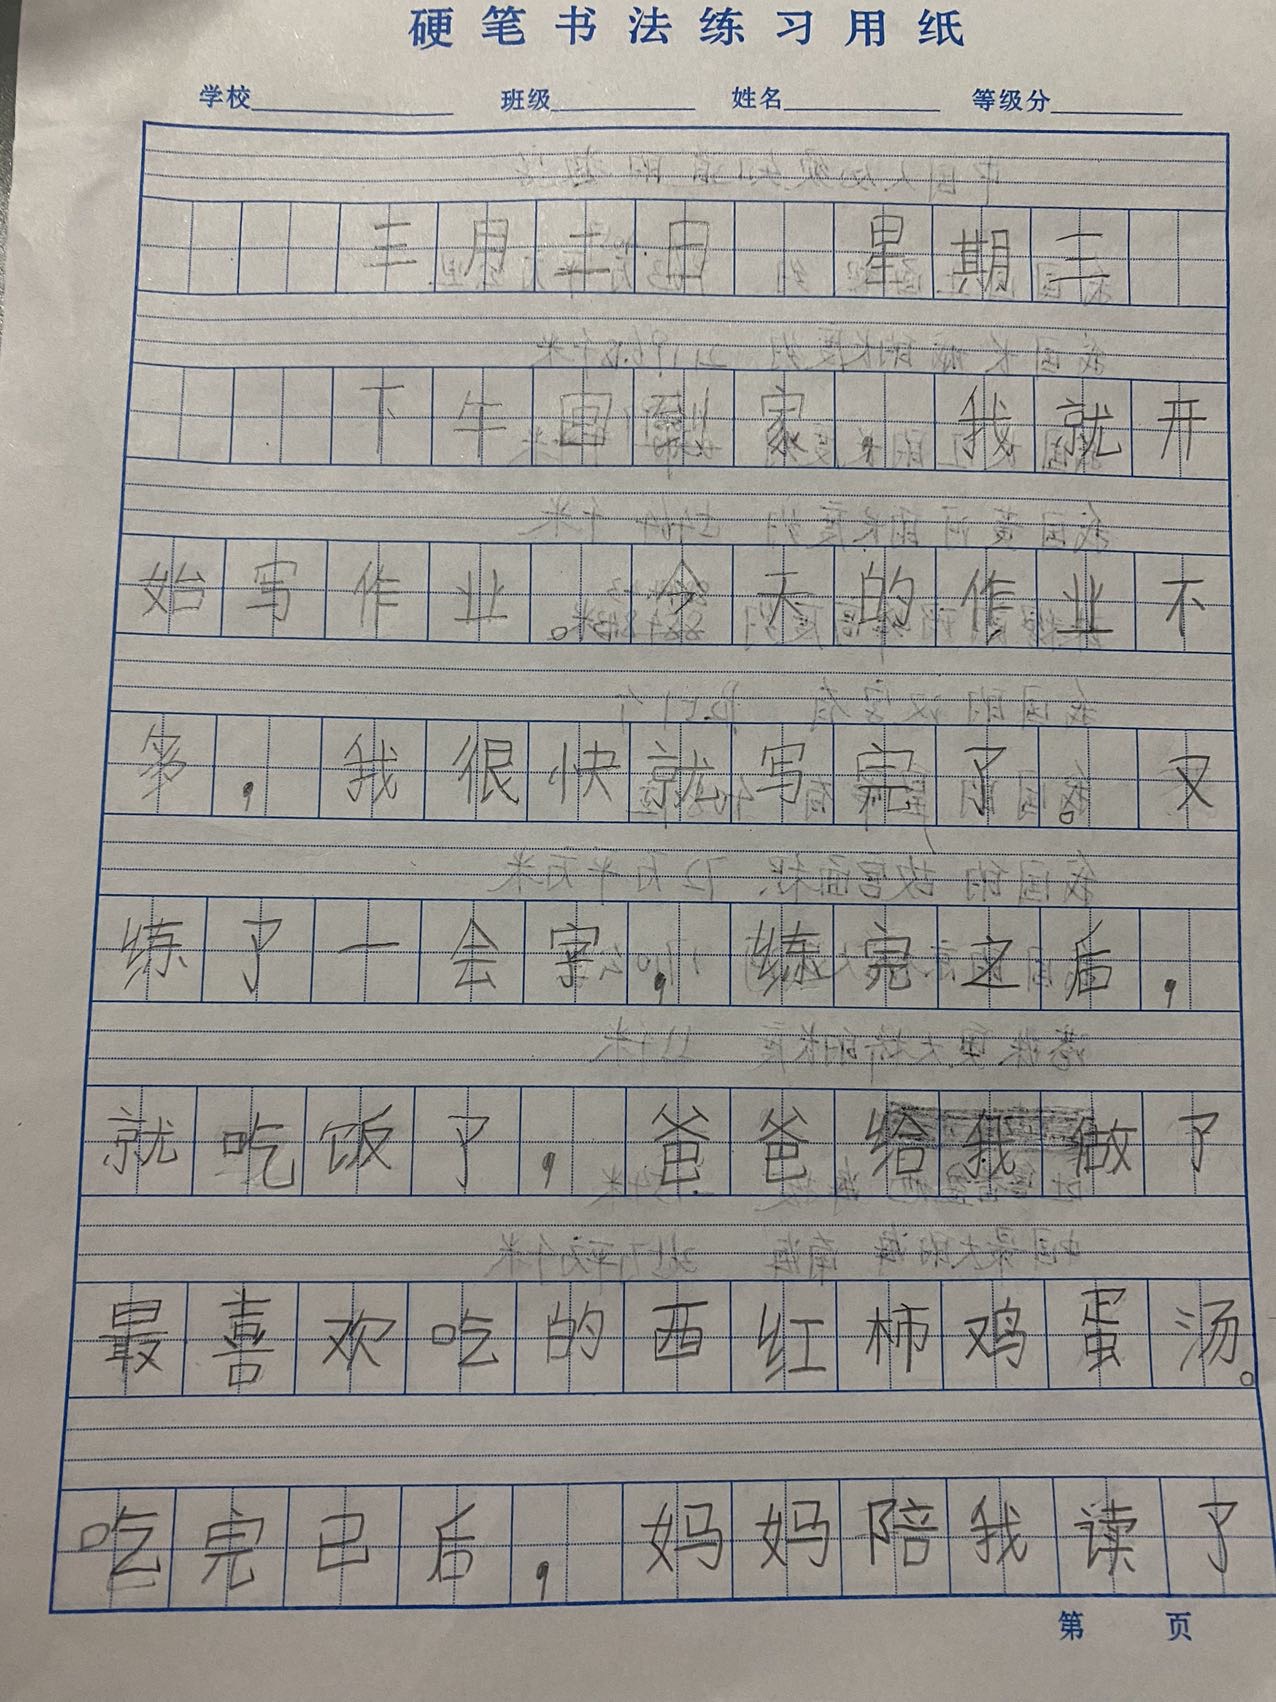 硬笔书法练习用纸
学校 班级 姓名 等级分
三月二日 星期三
下午回到家,我就开
始写作业。今天的作业不
多,我很快就写完了。又
练了一会字,练完之后,
就吃饭了,爸爸给我做了
最喜欢吃的西红柿鸡蛋汤。
吃完已后,妈妈陪我读了
第 页